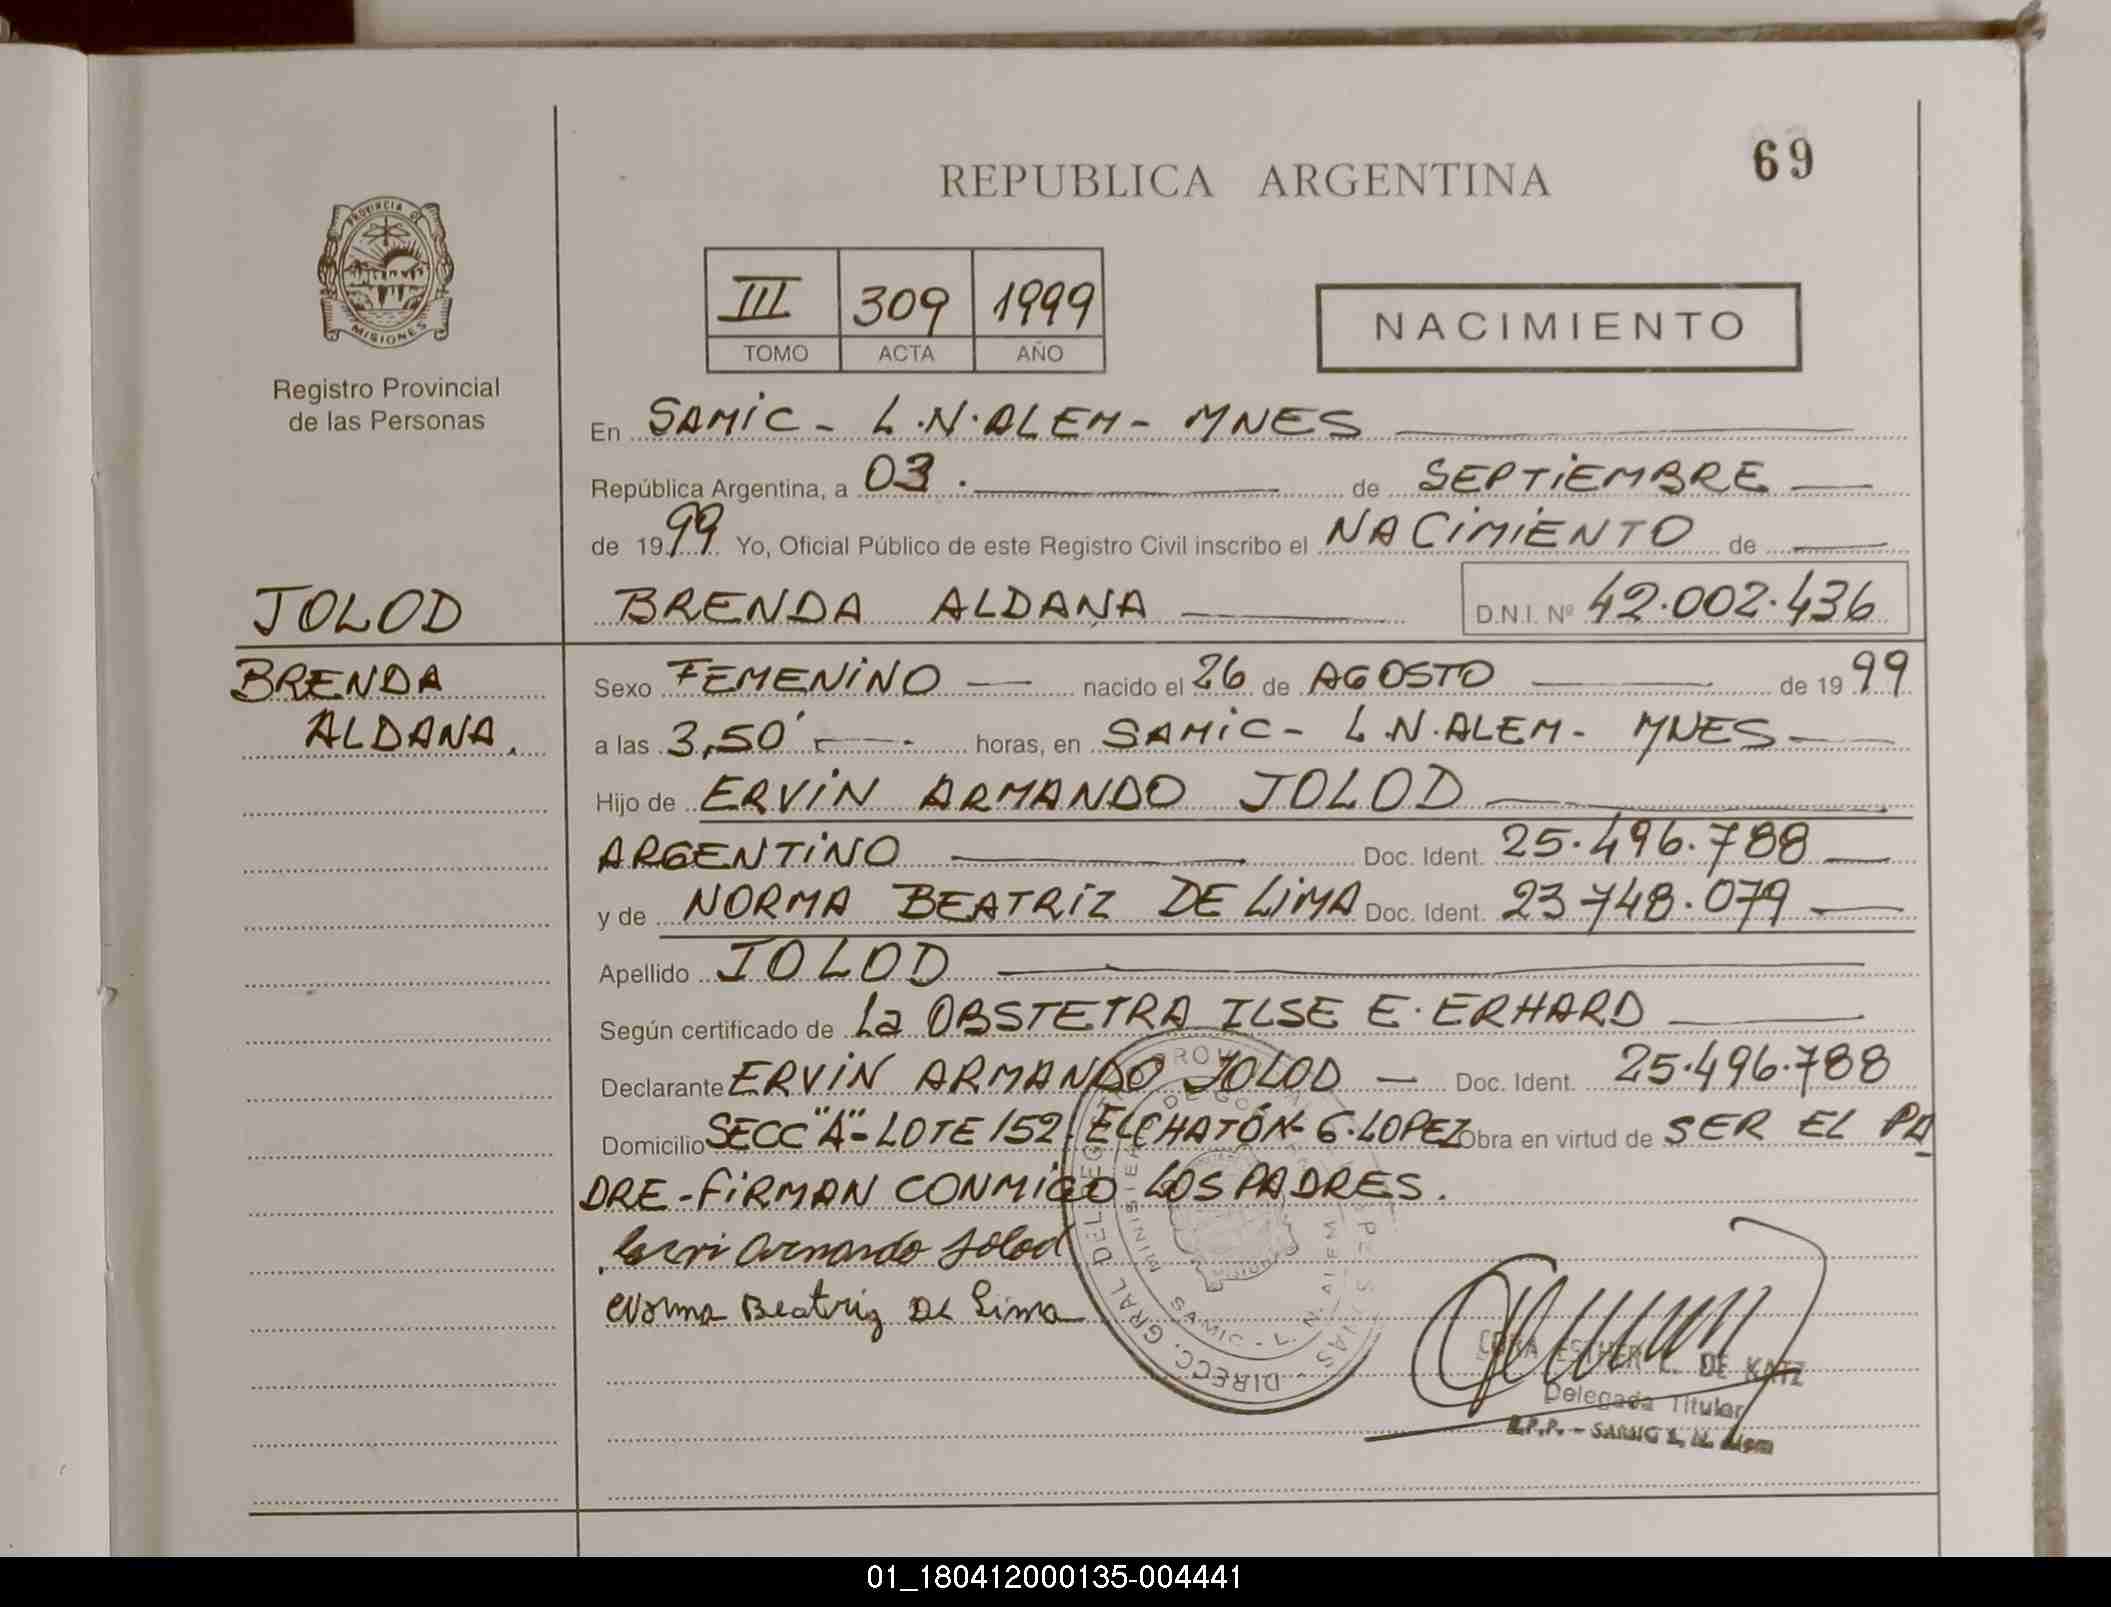 69
REPUBLICA ARGENTINA
PROVINCIA DE
MISIONES
Registro Provincial
de las Personas
III 309 1999
TOMO ACTA AÑO
NACIMIENTO
En SAMIC - L.N. ALEM - MNES
República Argentina, a 03. de SEPTIEMBRE
de 1999 Yo, Oficial Público de este Registro Civil inscribo el NACIMIENTO de
JOLOD
BRENDA ALDANA D.N.I. Nº 42.002.436
BRENDA
ALDANA.
Sexo FEMENINO nacido el 26 de AGOSTO de 1999
a las 3,50' horas, en SAMIC - L.N. ALEM - MNES
Hijo de ERVIN ARMANDO JOLOD
ARGENTINO Doc. Ident. 25.496.788
y de NORMA BEATRIZ DE LIMA Doc. Ident. 23.748.079
Apellido JOLOD
Según certificado de La OBSTETRA ILSE E. ERHARD
Declarante ERVIN ARMANDO JOLOD Doc. Ident. 25.496.788
Domicilio SECC "A" - LOTE 152 EL CHATÓN - G. LOPEZ Obra en virtud de SER EL PA
DRE - FIRMAN CONMIGO LOS PADRES.
Armando Jolod
Norma Beatriz De Lima
DIRECC. GRAL DEL
SAMIC - L. N. ALEM
ESTHER C. DE KATZ
Delegada Titular
R.P.P. - SAMIC L. N. Alem
01_180412000135-004441